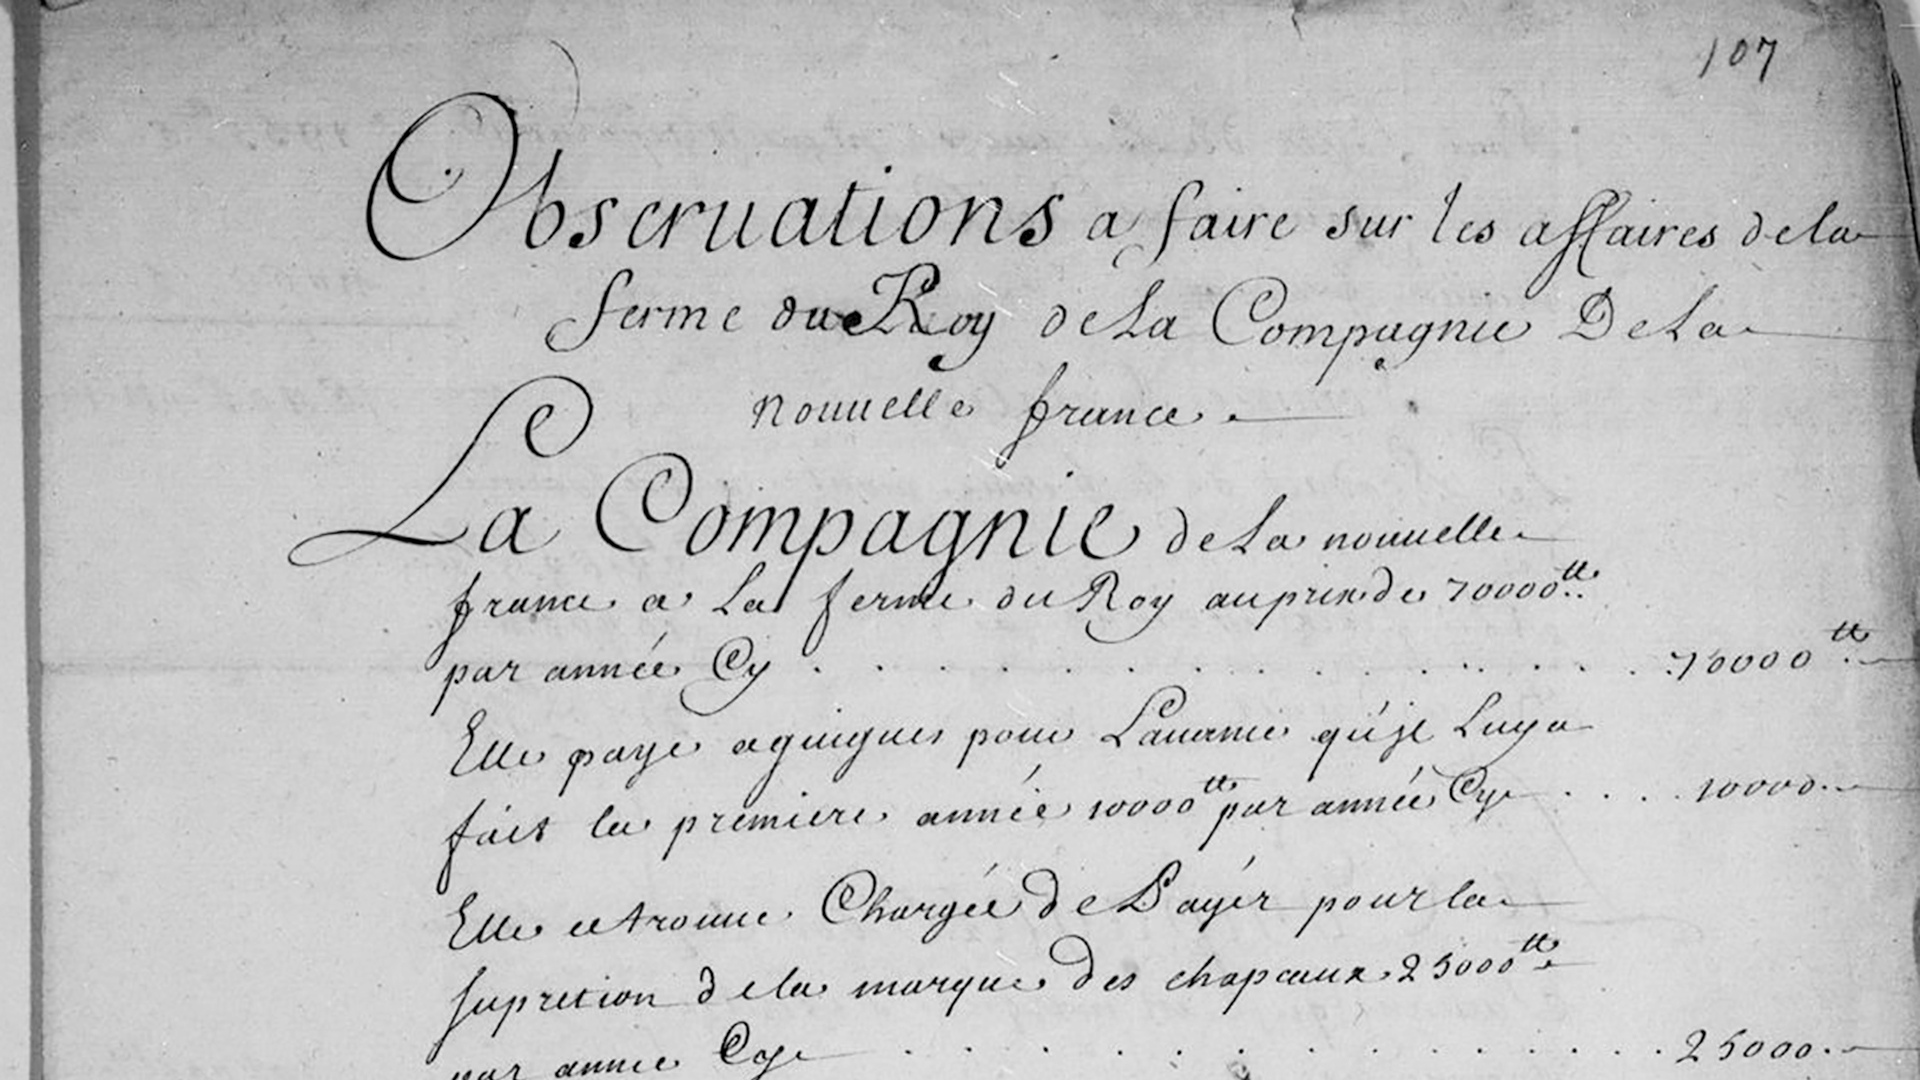 107
Obseruations a faire sur les affaires de la
ferme du Roy de La Compagnie De La
nouuelle france .
La Compagnie de La nouuelle
france a La ferme du Roy au prix de 70000tt.
par année Cy . . . . . . . . . . . . . . 70000tt.
Elle paye a guigues pour Lauance qu'jl Luy a
fait la premiere année 10000tt par année Cy . . . . 10000.
Elle ce trouue Chargée De Payér pour la
supretion de la marque des chapeaux 25000tt.
par annee Cy . . . . . . . . . . . . 25000.